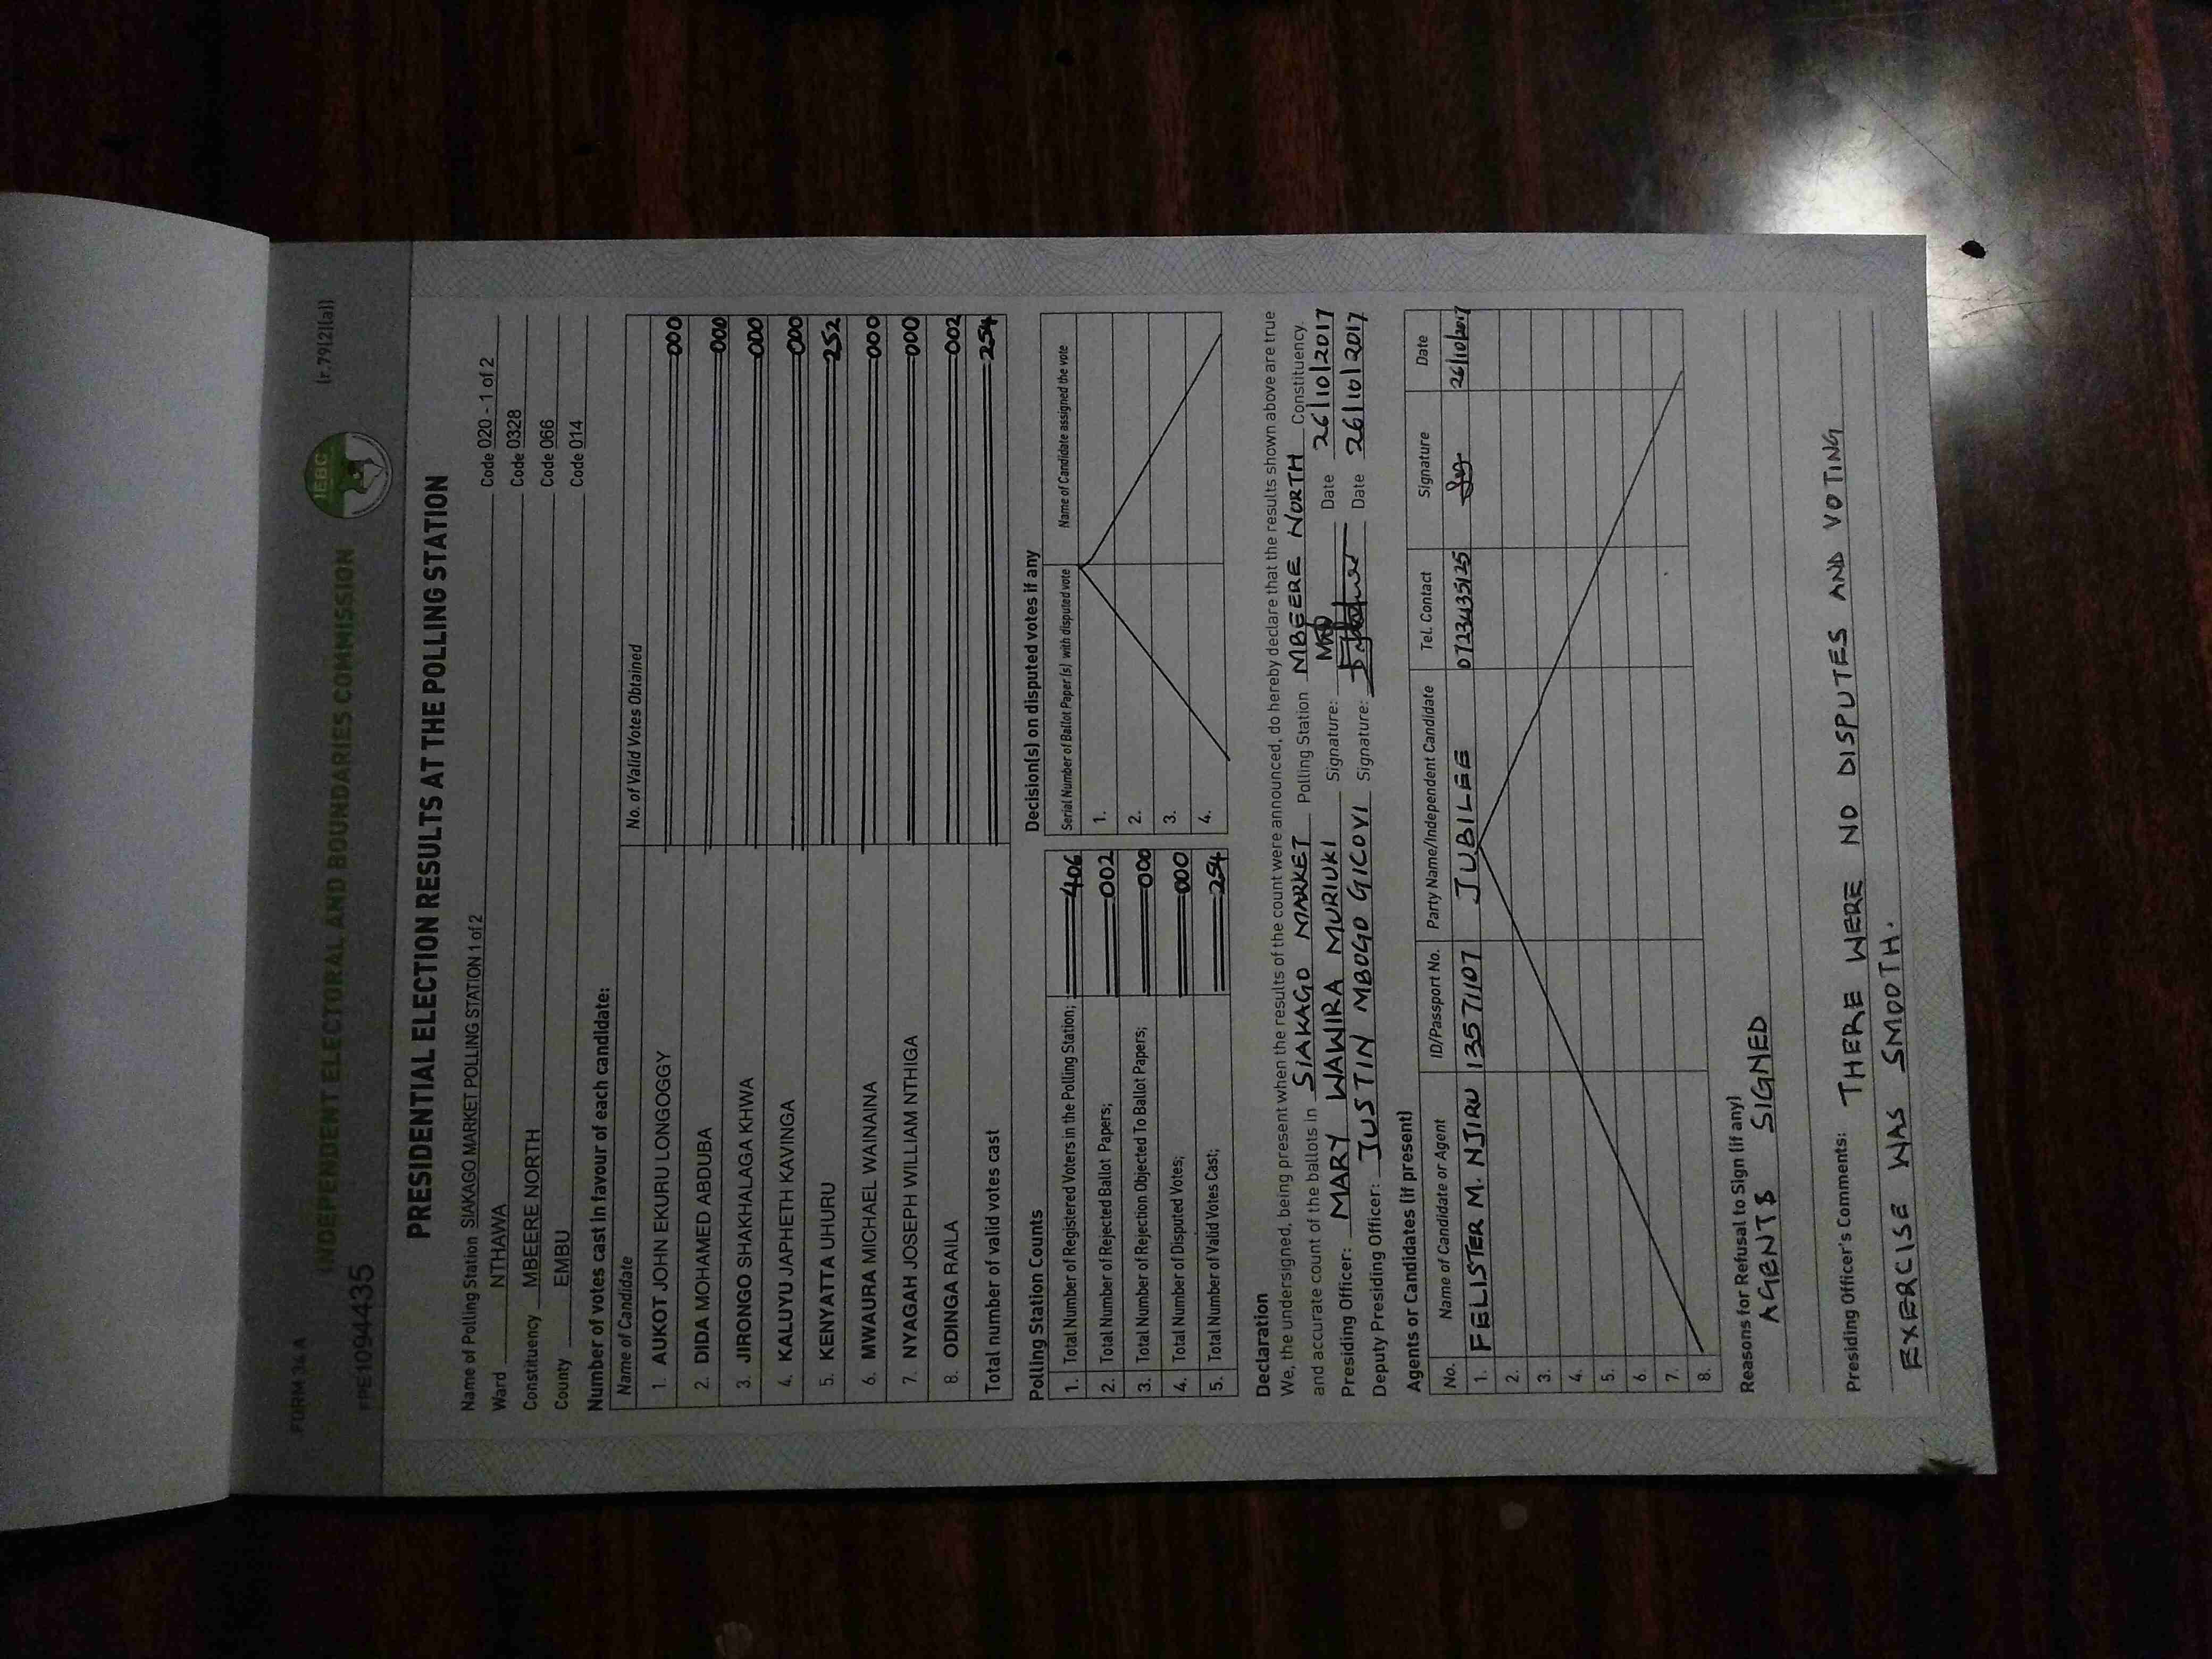 FORM 34 A
INDEPENDENT ELECTORAL AND BOUNDARIES COMMISSION
IEBC
(r.79(2)(a))
PE1094435
PRESIDENTIAL ELECTION RESULTS AT THE POLLING STATION
Name of Polling Station SIAKAGO MARKET POLLING STATION 1 of 2 Code 020 - 1 of 2
Ward NTHAWA Code 0328
Constituency MBEERE NORTH Code 066
County EMBU Code 014
Number of votes cast in favour of each candidate:
Name of Candidate No. of Valid Votes Obtained
1. AUKOT JOHN EKURU LONGOGGY 000
2. DIDA MOHAMED ABDUBA 000
3. JIRONGO SHAKHALAGA KHWA 000
4. KALUYU JAPHETH KAVINGA 000
5. KENYATTA UHURU 252
6. MWAURA MICHAEL WAINAINA 000
7. NYAGAH JOSEPH WILLIAM NTHIGA 000
8. ODINGA RAILA 002
Total number of valid votes cast 254
Polling Station Counts
1. Total Number of Registered Voters in the Polling Station; 406
2. Total Number of Rejected Ballot Papers; 002
3. Total Number of Rejection Objected To Ballot Papers; 000
4. Total Number of Disputed Votes; 000
5. Total Number of Valid Votes Cast; 254
Decision(s) on disputed votes if any
Serial Number of Ballot Paper(s) with disputed vote Name of Candidate assigned the vote
1.
2.
3.
4.
Declaration
We, the undersigned, being present when the results of the count were announced, do hereby declare that the results shown above are true
and accurate count of the ballots in SIAKAGO MARKET Polling Station MBEERE NORTH Constituency.
Presiding Officer: MARY WAWIRA MURIUKI Signature: Date 26/10/2017
Deputy Presiding Officer: JUSTIN MBOGO GICOVI Signature: Date 26/10/2017
Agents or Candidates (if present)
No. Name of Candidate or Agent ID/Passport No. Party Name/Independent Candidate Tel. Contact Signature Date
1. FELISTER M. NJIRU 13571107 JUBILEE 0723435125 26/10/2017
2.
3.
4.
5.
6.
7.
8.
Reasons for Refusal to Sign (if any)
AGENTS SIGNED
Presiding Officer's Comments: THERE WERE NO DISPUTES AND VOTING
EXERCISE WAS SMOOTH.